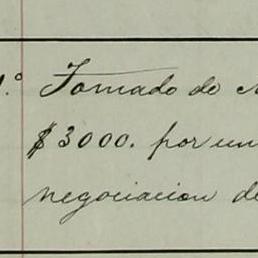 1.º Tomado de
$3000. por un
negociacion de